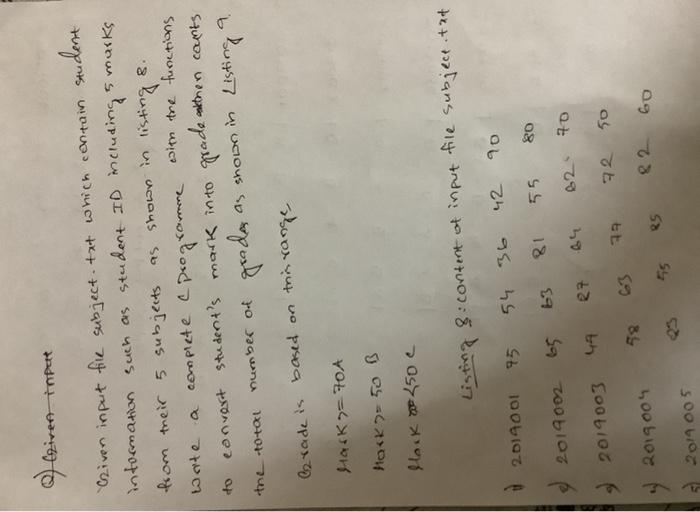 Q) Given input
Given input file subject.txt which contain student
information such as student ID including 5 marks
from their 5 subjects as shown in listing 8.
Write a complete C programme with the functions
to convert student's mark into grade then counts
the total number of grades as shown in Listing 9
Grade is based on this range
Mark >= 70 A
Mark >= 50 B
Mark <50 C
Listing 8: content of input file subject.txt
1) 2019001 75 54 36 42 90
2) 2019002 65 63 81 55 80
3) 2019003 49 87 64 62 70
4) 2019004 58 63 77 72 50
5) 2019005 23 55 85 82 60